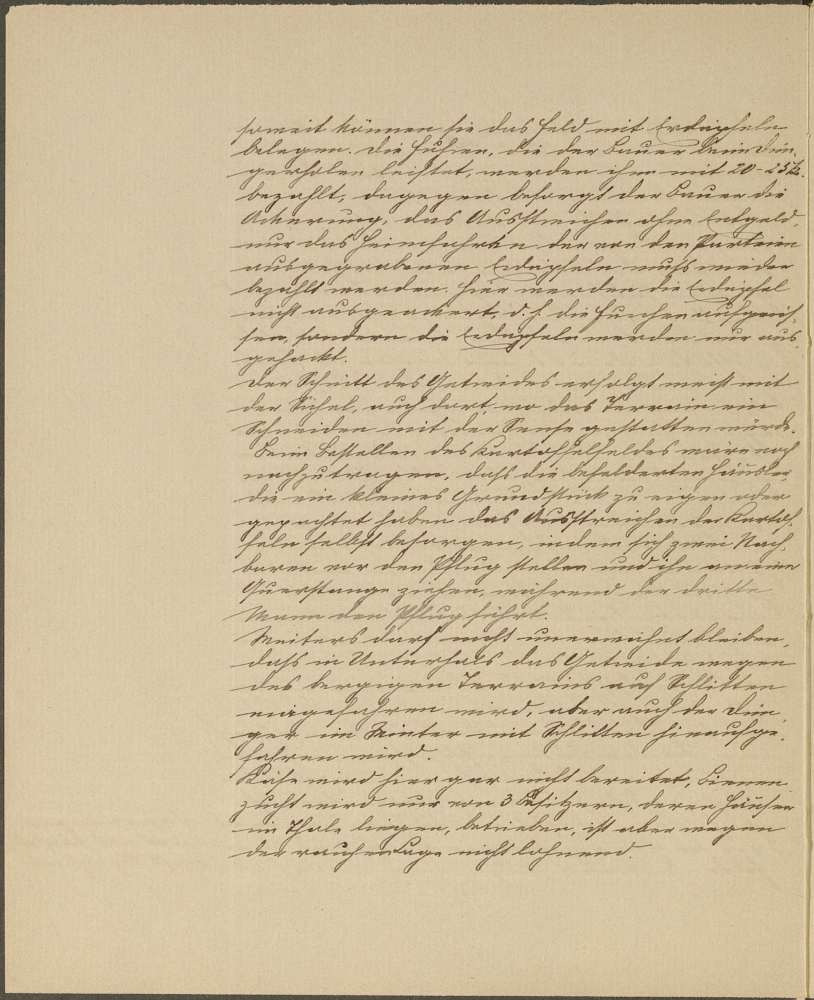 soweit können sie das Feld mit Erdäpfeln
belegen. Die Fuhren, die der Bauer beim Dün¬
gerholen leistet, werden ihm mit 20-25 K.
bezahlt, dagegen besorgt der Bauer die
Ackerung, das Ausstreichen ohne Entgeld,
nur das Heimfahren der von den Parteien
ausgegrabenen Erdäpfeln muß wieder
bezahlt werden. Hier werden die Erdäpfel
nicht ausgeackert, d. h. die Furchen aufgeris¬
sen, sondern die Erdäpfeln werden nur aus¬
gehackt.
Der Schnitt des Getreides erfolgt meist mit
der Sichel, auch dort, wo das Terrain ein
Schneiden mit der Sense gestatten würde.
Beim Bestellen des Kartoffelfeldes wäre noch
nachzutragen, daß die befelderten Häusler,
die ein kleines Grundstück zu eigen oder
gepachtet haben das Ausstreichen der Kartof¬
feln selbst besorgen, indem sich zwei Nach¬
baren vor den Pflug stellen und ihn an einer
Querstange ziehen, während der dritte
Mann den Pflug führt.
Weiters darf nicht unerwähnt bleiben,
daß in Unterhals das Getreide wegen
des bergigen Terrains auf Schlitten
eingefahren wird, aber auch der Dün¬
ger im Winter mit Schlitten hinaufge¬
fahren wird.
Käse wird hier gar nicht bereitet, Bienen¬
zucht wird nur von 3 Besitzern, deren Häuser
im Thale liegen, betrieben, ist aber wegen
der rauhen Lage nicht lohnend.